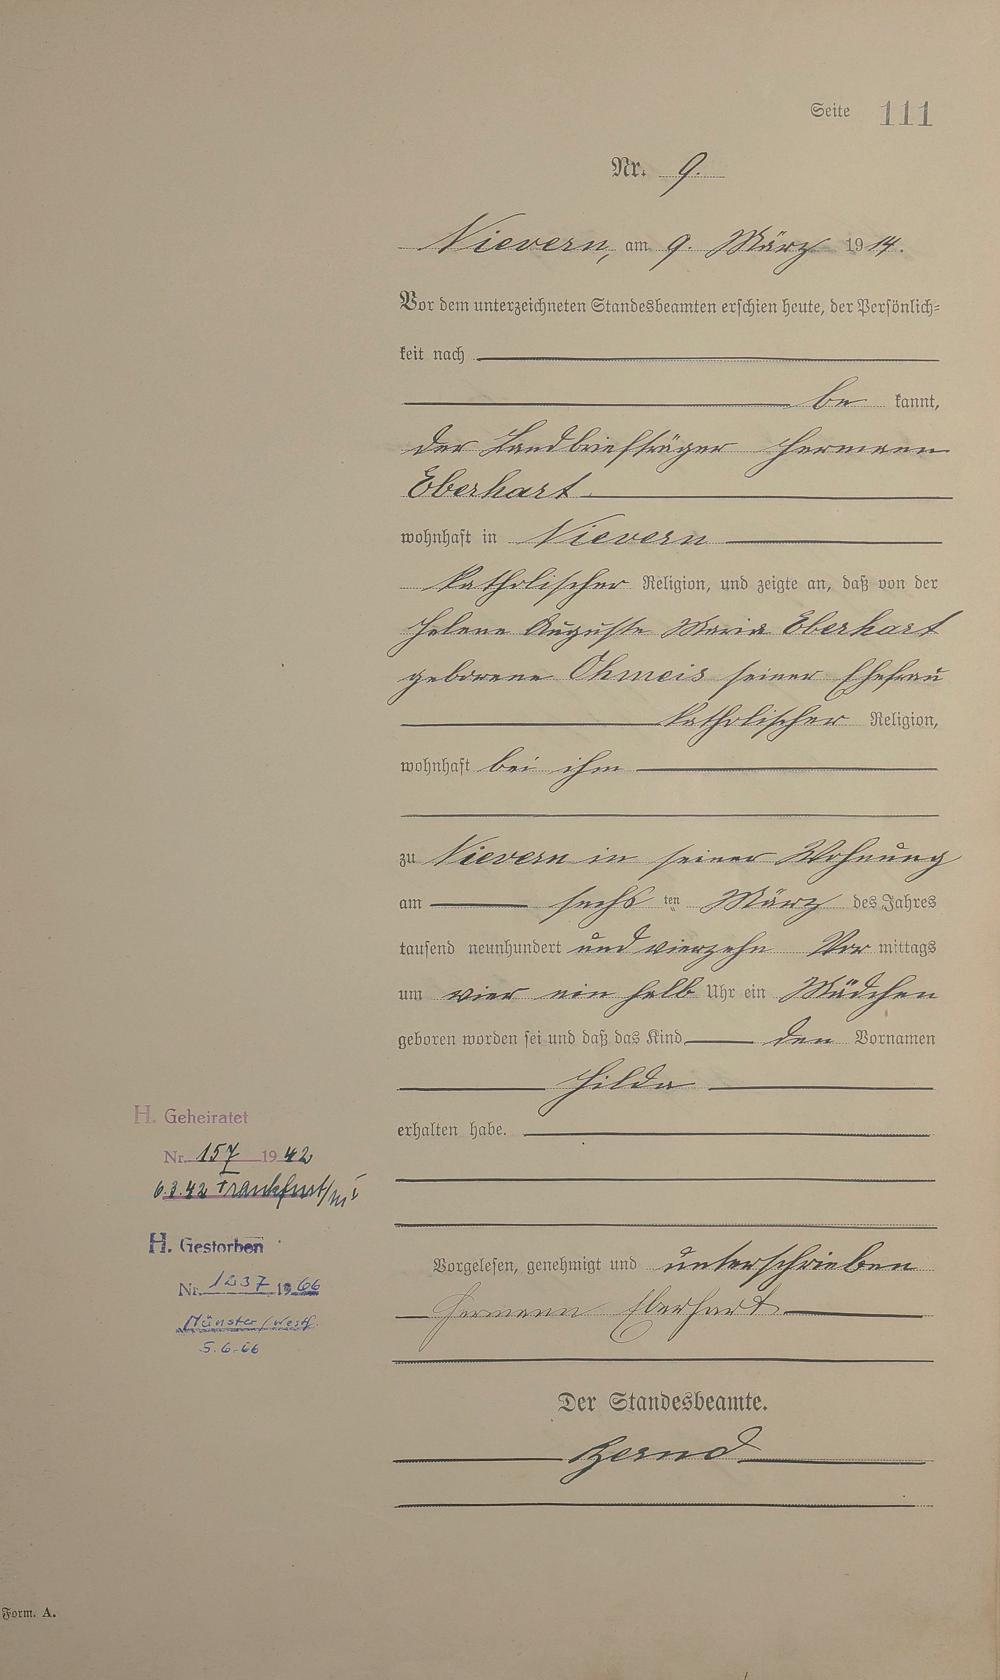 Seite 111
Nr. 9.
Nievern, am 9. März 1914.
Vor dem unterzeichneten Standesbeamten erschien heute, der Persönlich-
keit nach
be kannt,
der Landbriefträger Hermann
Eberhart
wohnhaft in Nievern
katholischer Religion, und zeigte an, daß von der
Helene Auguste Maria Eberhart
geborene Ohmeis seiner Ehefrau
katholischer Religion,
wohnhaft bei ihm
zu Nievern in seiner Wohnung
am sechs ten März des Jahres
tausend neunhundert und vierzehn Vor mittags
um vier ein halb Uhr ein Mädchen
geboren worden sei und daß das Kind den Vornamen
Hilda
erhalten habe.
H. Geheiratet
Nr. 157 1942
6.3.42 Frankfurt/M
H. Gestorben
Nr. 1237 1966
Münster/Westf.
5.6.66
Vorgelesen, genehmigt und unterschrieben
Hermann Eberhart
Der Standesbeamte.
Form. A.